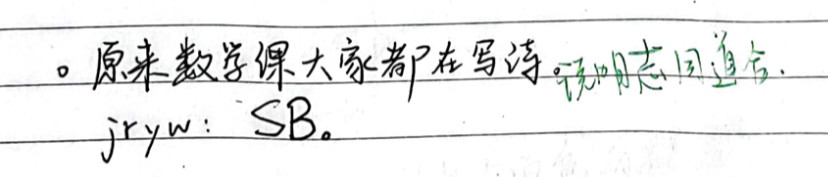 。原来数学课大家都在写诗。说明志同道合.
jryw: SB。